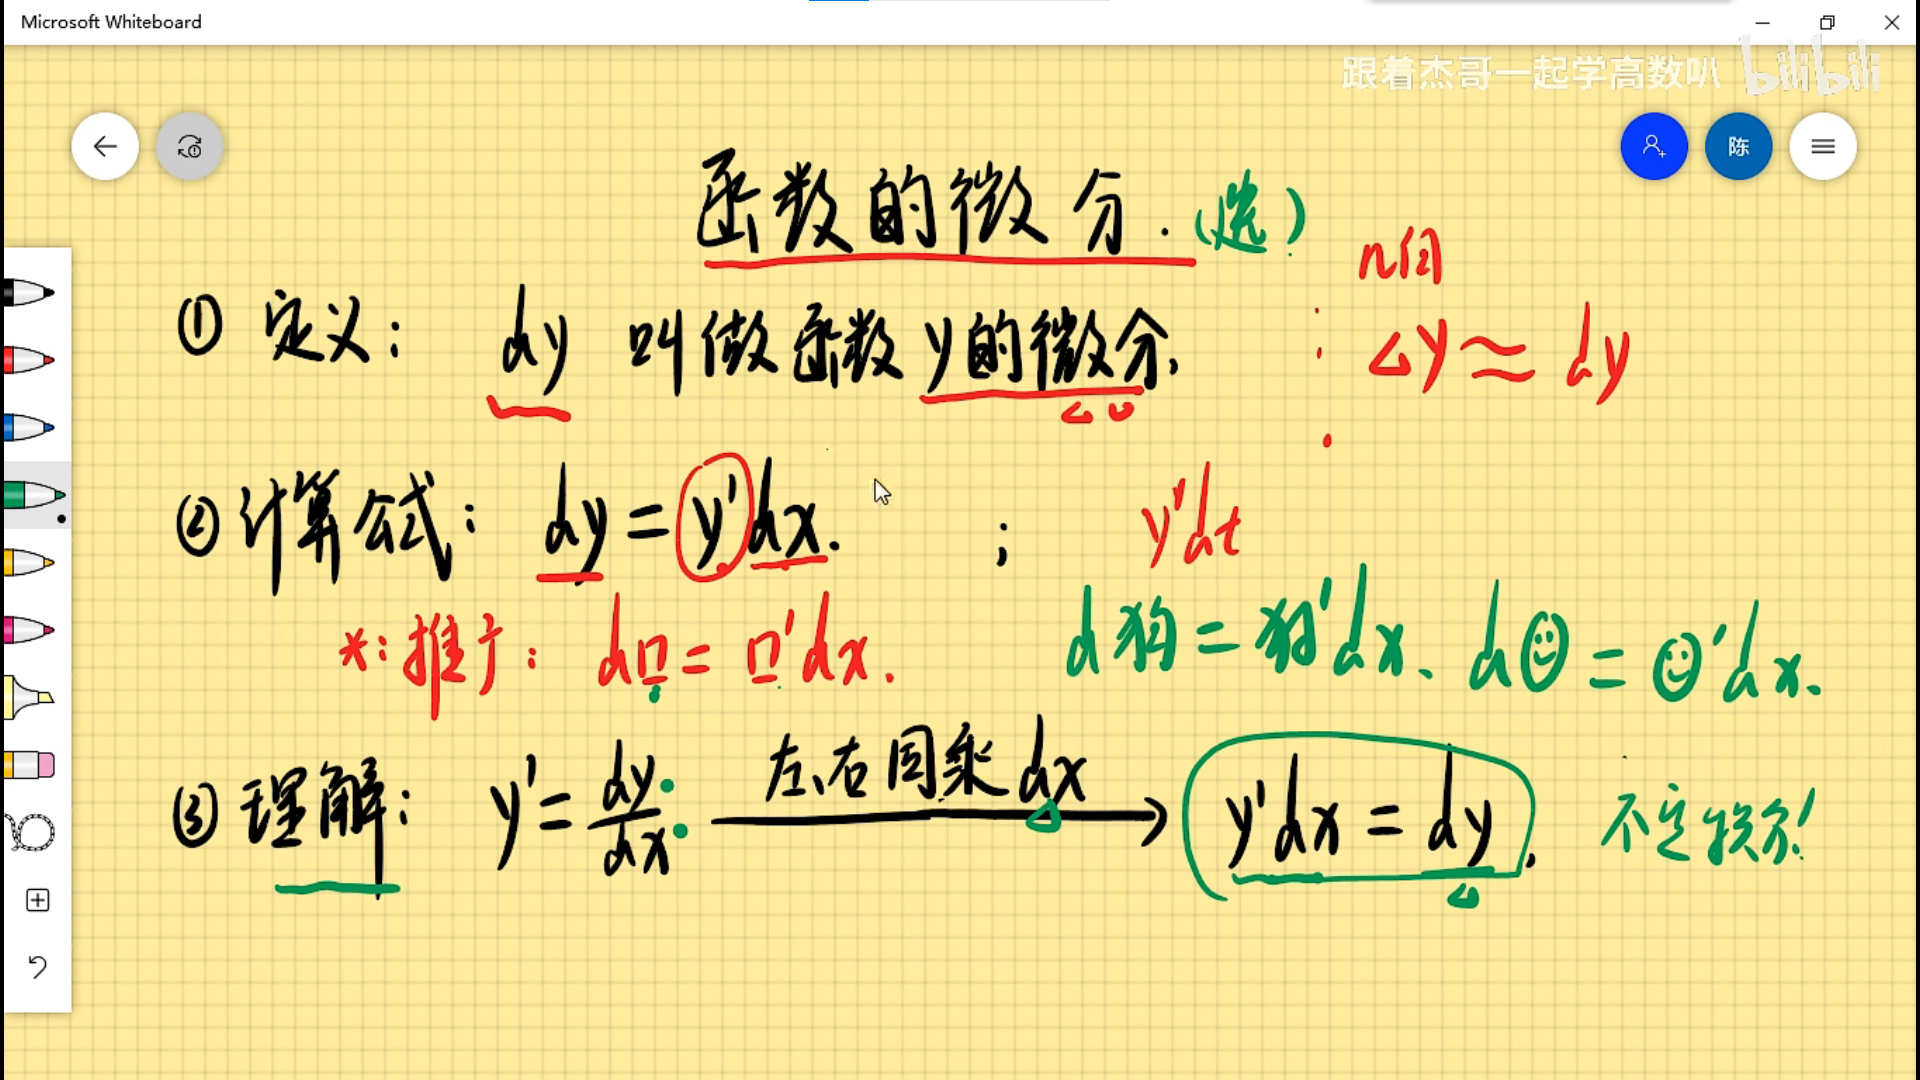 Microsoft Whiteboard
跟着杰哥一起学高数叭 bilibili
陈
函数的微分.(选)
n阶
① 定义: dy 叫做函数y的微分,
Δy≈dy
② 计算公式: dy=y'dx. ;
y'dt
*:推广: d口=口'dx.
d狗=狗'dx. d☺=☺'dx.
③ 理解: y'=dy/dx 左、右同乘dx → y'dx=dy.
不定积分!